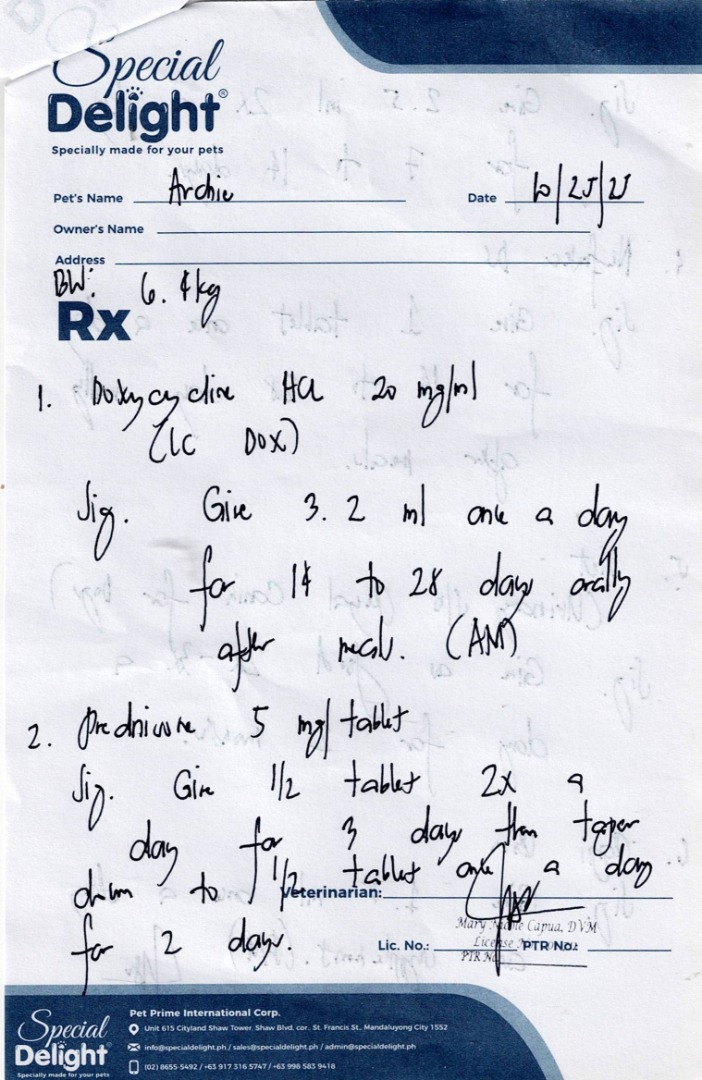 Special
Delight®
Specially made for your pets
Pet's Name Archie Date 6/25/25
Owner's Name
Address
BW: 6.4kg
Rx
1. Doxycycline HCl 20 mg/ml
(LC DOX)
Sig. Give 3.2 ml once a day
for 14 to 28 days orally
after meals. (AM)
2. Prednisone 5 mg/tablet
Sig. Give 1/2 tablet 2x a
day for 3 days then taper
down to 1/2 tablet once a day
for 2 days.
Veterinarian:
Capua, DVM
Lic. No.: PTR No.:
Special
Delight
Specially made for your pets
Pet Prime International Corp.
Unit 615 Cityland Shaw Tower. Shaw Blvd. cor. St. Francis St., Mandaluyong City 1552
info@specialdelight.ph / sales@specialdelight.ph / admin@specialdelight.ph
(02) 8655-5492 / +63 917 316 5747 / +63 998 583 9418